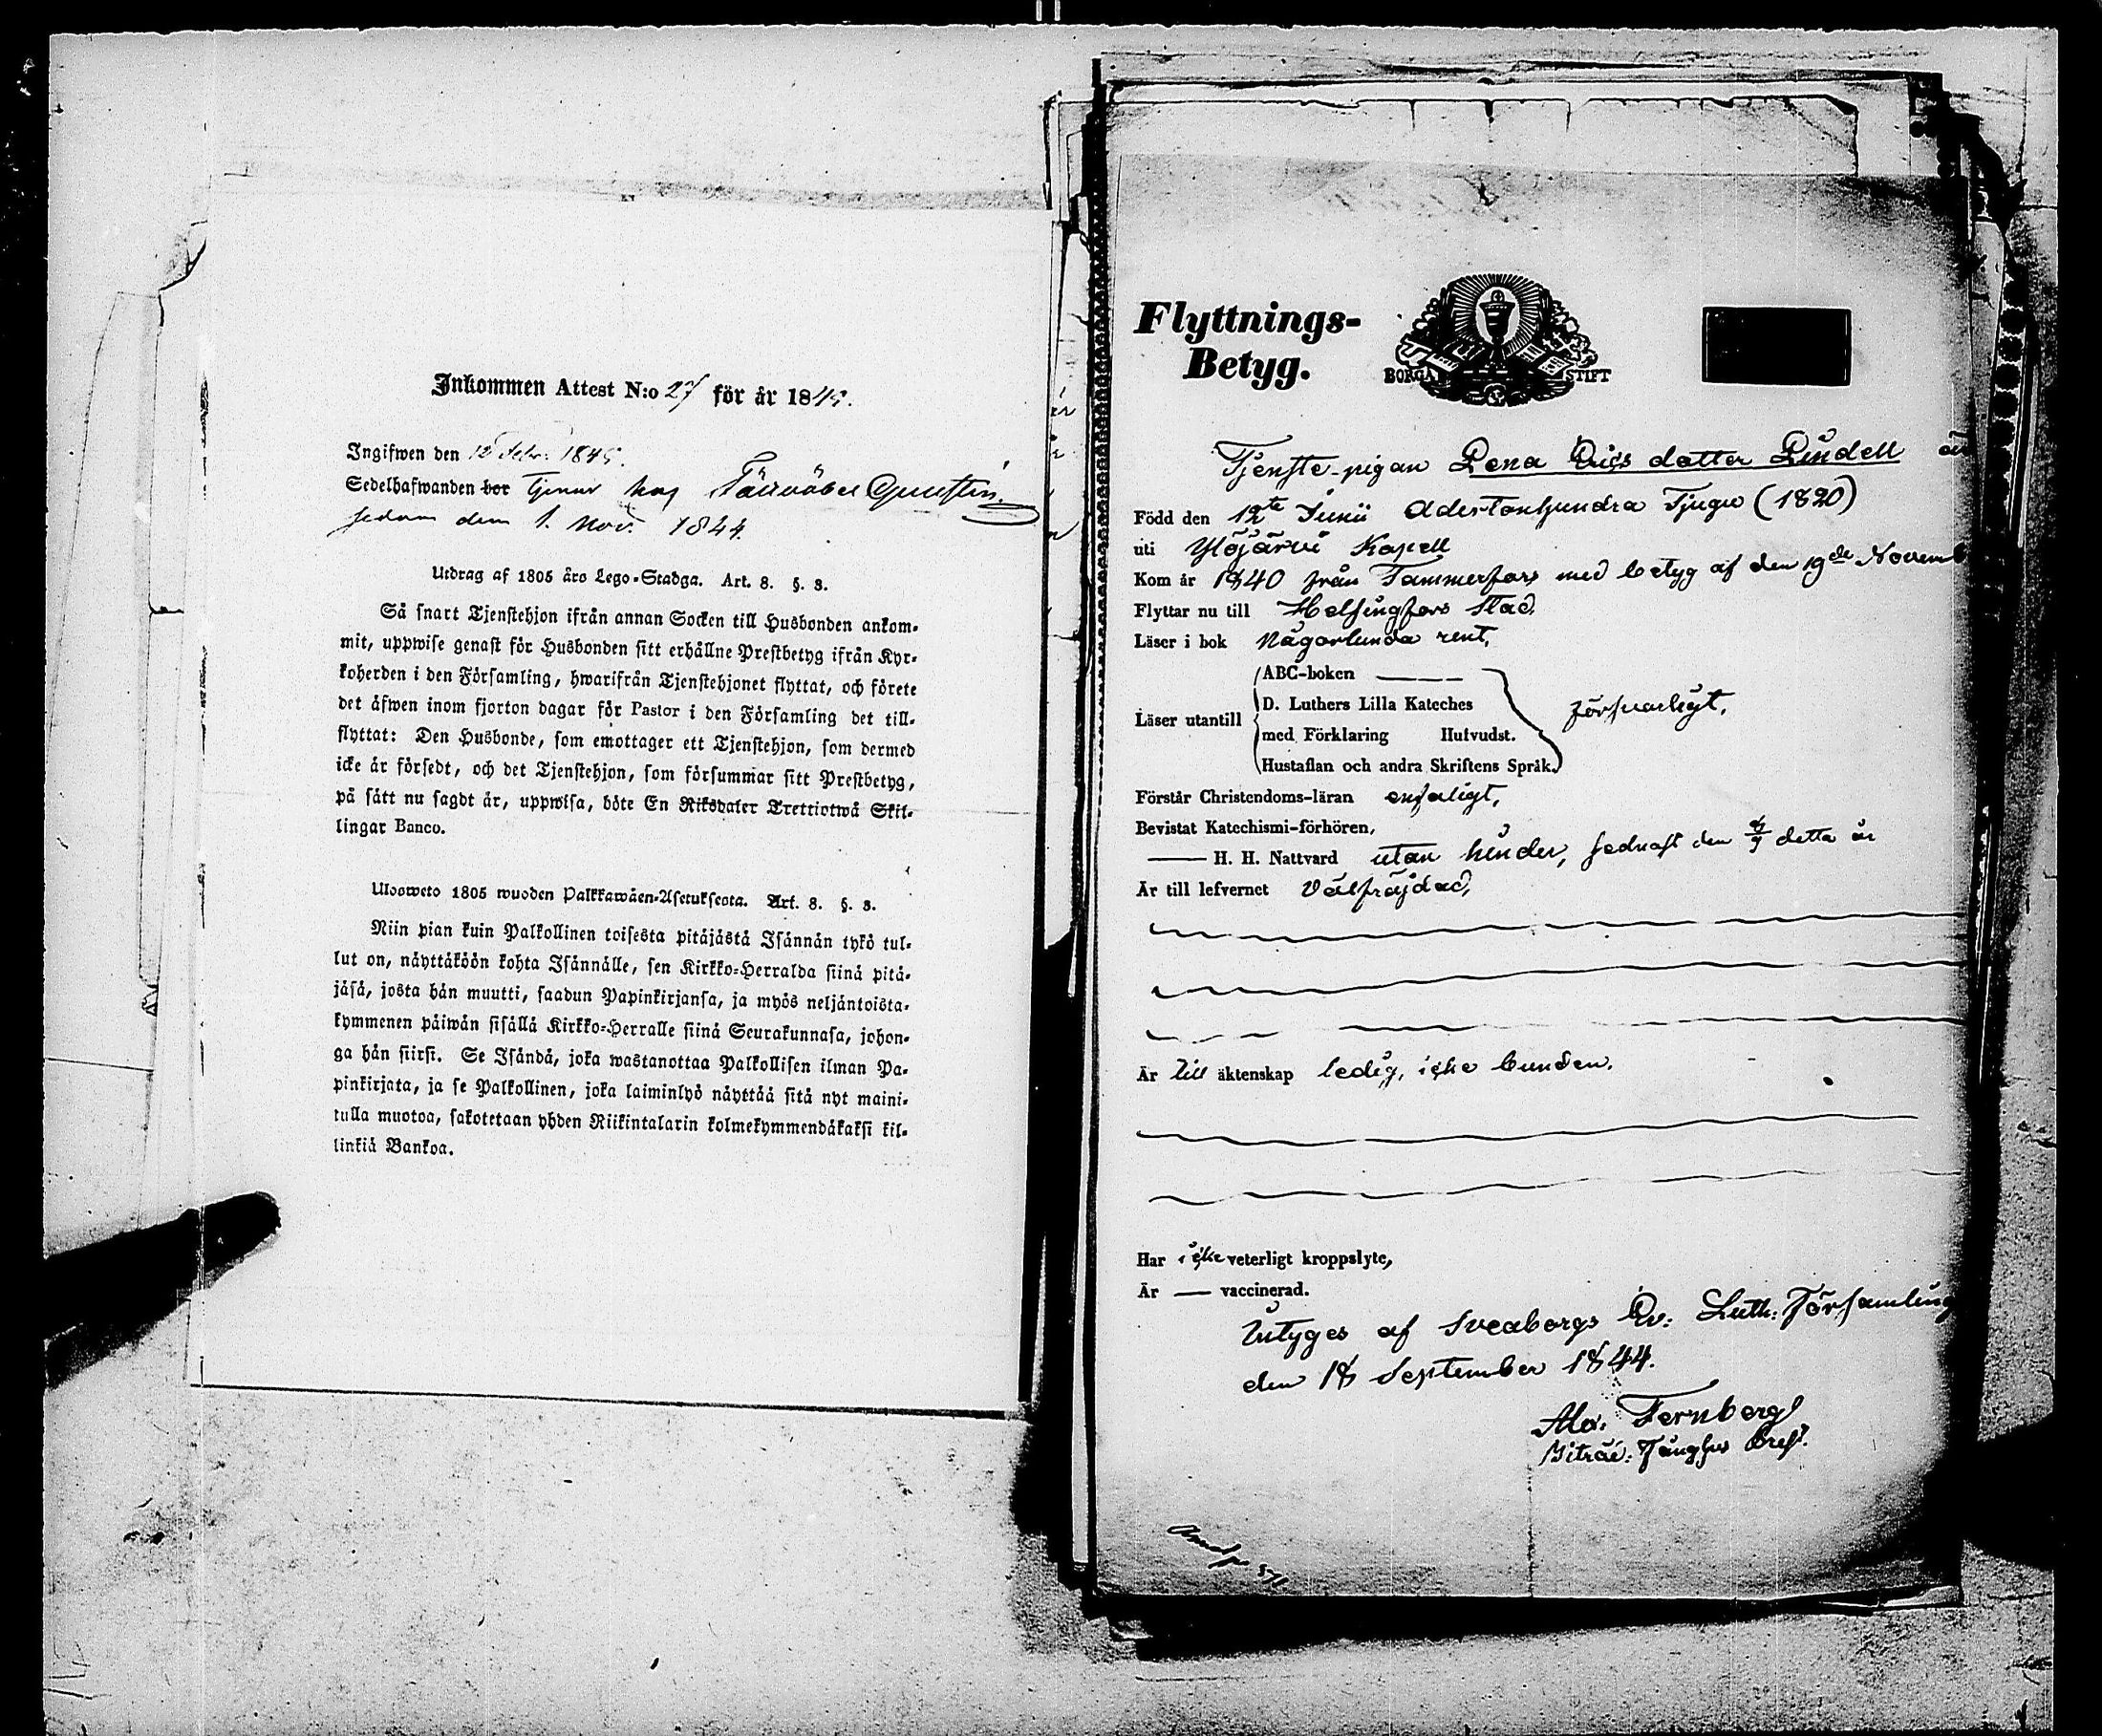 Inkommen Attest N:o 27 för år 1845.
Ingifwen den 12 Febr: 1845.
Sedelhafwanden bor tjenar hos
sedan den 1. Nov. 1844.
Utdrag af 1805 års Lego-Stadga. Art. 8. §. 3.
Så snart Tjenstehjon ifrån annan Socken till Husbonden ankom-
mit, uppwise genast för Husbonden sitt erhållne Prestbetyg ifrån Kyr-
koherden i den Församling, hwarifrån Tjenstehjonet flyttat, och förete
det åfwen inom fjorton dagar för Pastor i den Församling det till-
flyttat: Den Husbonde, som emottager ett Tjenstehjon, som dermed
icke år försedt, och det Tjenstehjon, som försummar sitt Prestbetyg,
på sått nu sagdt år, uppwisa, böte En Riksdaler Trettiotwå Skil-
lingar Banco.
Uloosweto 1805 wuoden Palkkawäen-Asetuksesta. Art. 8. §. 3.
Niin pian kuin Palkollinen toisesta pitäjästä Isännän tykö tul-
lut on, näyttäköön kohta Isännälle, sen Kirkko-Herralda siinä pitä-
jäsä, josta hän muutti, saadun Papinkirjansa, ja myös neljäntoista-
kymmenen päiwän sisällä Kirkko-Herralle siinä Seurakunnasa, johon-
ga hän siirsi. Se Isändä, joka wastanottaa Palkollisen ilman Pa-
pinkirjata, ja se Palkollinen, joka laiminlyö näyttää sitä nyt maini-
tulla muotoa, sakotetaan yhden Riikintalarin kolmekymmendäkaksi kil-
linkiä Bankoa.
Flyttnings-
Betyg.
BORGÅ STIFT
Tjenste-pigan Lena Erics dotter Lindell är
Född den 12te Junii Adertonhundra Tjugu (1820)
uti Ylöjärvi Kapell
Kom år 1840 från Tammerfors med betyg af den 19de Novemb
Flyttar nu till Helsingfors Stad.
Läser i bok någorlunda rent,
ABC-boken
D. Luthers Lilla Kateches
Läser utantill försvarligt,
med Förklaring Hufvudst.
Hustaflan och andra Skriftens Språk.
Förstår Christendoms-läran enfaligt,
Bevistat Katechismi-förhören,
H. H. Nattvard utan hinder, sednast den detta år
Är till lefvernet välfräjdad,
Är till äktenskap ledig, icke bunden.
Har icke veterligt kroppslyte,
Är — vaccinerad.
Intyges af Sveaborgs Ev: Luth: Församling
den 18 September 1844.
Alex: Fernberg
Fänghus Prest.